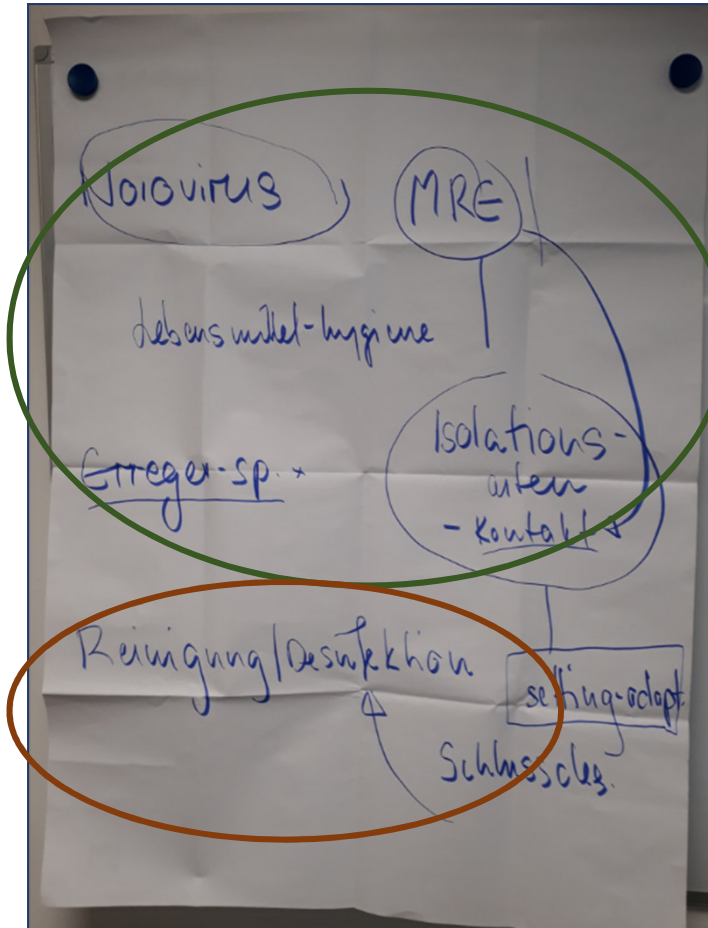 Norovirus
MRE
Lebensmittel-hygiene
Erreger-sp.
Isolations-
arten
- Kontakt
Reinigung/Desinfektion
setting-adapt.
Schlussdes.